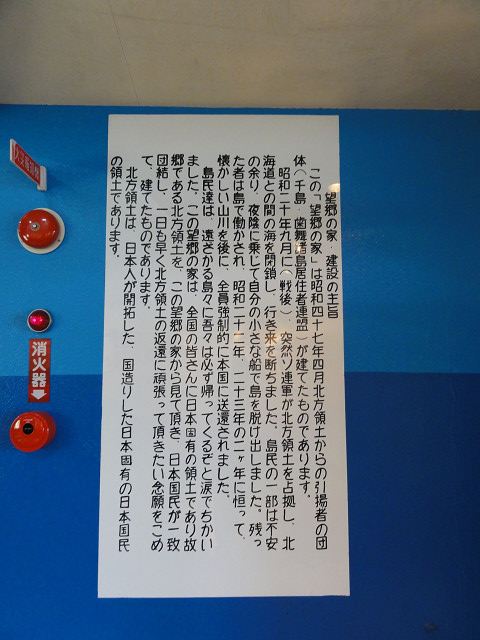 望郷の家 建設の主旨
この「望郷の家」は昭和四十七年四月北方領土からの引揚者の団
体(千島 歯舞諸島居住者連盟)が建てたものであります。
昭和二十年九月に(戦後)、突然ソ連軍が北方領土を占拠し、北
海道との間の海を閉鎖し、行き来を断ちました。島民の一部は不安
の余り、夜陰に乗じて自分の小さな船で島を脱け出しました。残っ
た者は島で働かされ、昭和二十二年、二十三年の二ヶ年に恒って、
懐かしい山川を後に、全員強制的に本国に送還されました。
島民達は、遠ざかる島々に吾々は必ず帰ってくるぞと涙でちかい
ました。この望郷の家は、全国の皆さんに日本固有の領土であり故
郷である北方領土を、この望郷の家から見て頂き、日本国民が一致
団結し、一日も早く北方領土の返還に頑張って頂きたい念願をこめ
て、建てたものであります。
北方領土は、日本人が開拓した、国造りした日本固有の日本国民
の領土であります。
消火器